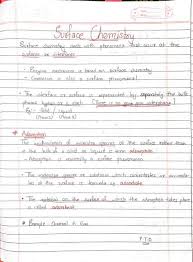 Surface Chemistry
Surface chemistry deals with phenomena that occur at the
surfaces or interfaces
- Enzyme mechanism is based on surface chemistry
- Corrosion is also a surface phenomena
The interface or surface is represented by separating the bulk
phases by a or a slash [There is no gas-gas interphase]
Eg: Solid - liquid
Adsorption
The accumulation of molecular species at the surface rather than
in the bulk of a solid or liquid is termed adsorption
- Adsorption is essentially a surface phenomena
The molecular species or substance which concentrates or accumula-
tes at the surface is termed as adsorbate
The material on the surface of which the adsorption takes place
is called adsorbent
Example - Charcoal
P.T.O